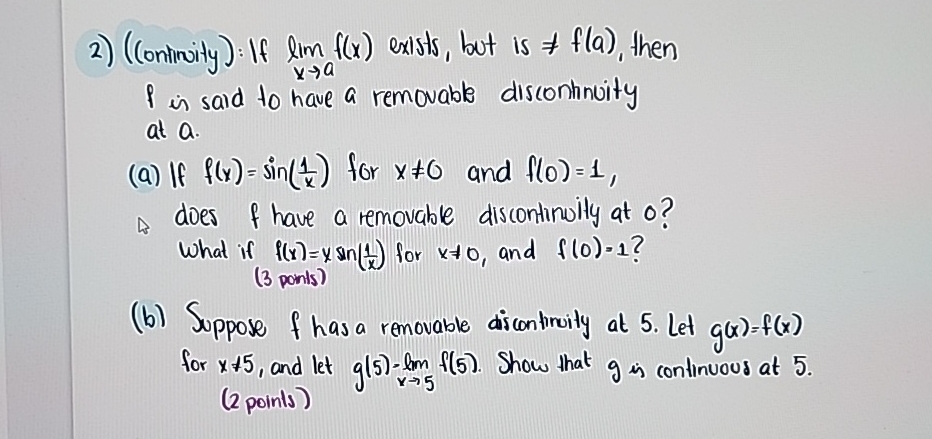 2) (Continuity): If lim f(x) exists, but is ≠ f(a), then
x→a
f is said to have a removable discontinuity
at a.
(a) If f(x) = sin(1/x) for x≠0 and f(0) = 1,
does f have a removable discontinuity at 0?
What if f(x) = x sin(1/x) for x≠0, and f(0) = 1?
(3 points)
(b) Suppose f has a removable discontinuity at 5. Let g(x) = f(x)
for x≠5, and let g(5) = lim f(5). Show that g is continuous at 5.
x→5
(2 points)